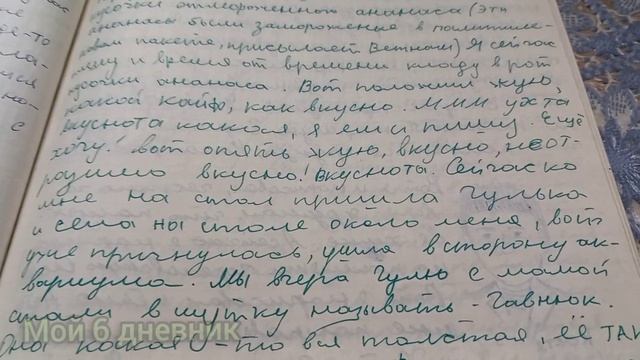 кусочки отмороженного ананаса (эти
ананасы были заморожение в полиэтиле-
новом пакете, присылает Ветнам) Я сейчас
пишу и время от времени кладу в рот
кусочки ананаса. Вот положил жую,
какой кайф, как вкусно. Ммм ух та
вкуснота какая, я ем и пишу. Ещё
хочу! вот опять жую, вкусно, не от-
вкусно! вкуснота. Сейчас ко
мне на стол пришла Гулька
и села на столе около меня, вот
уже пригнулась, ушла в сторону ак-
вариума. Мы вчера Гулю с мамой
стали в шутку называть - Гавнюк.
Она какая-то вся толстая, её так
Мой 6 дневник